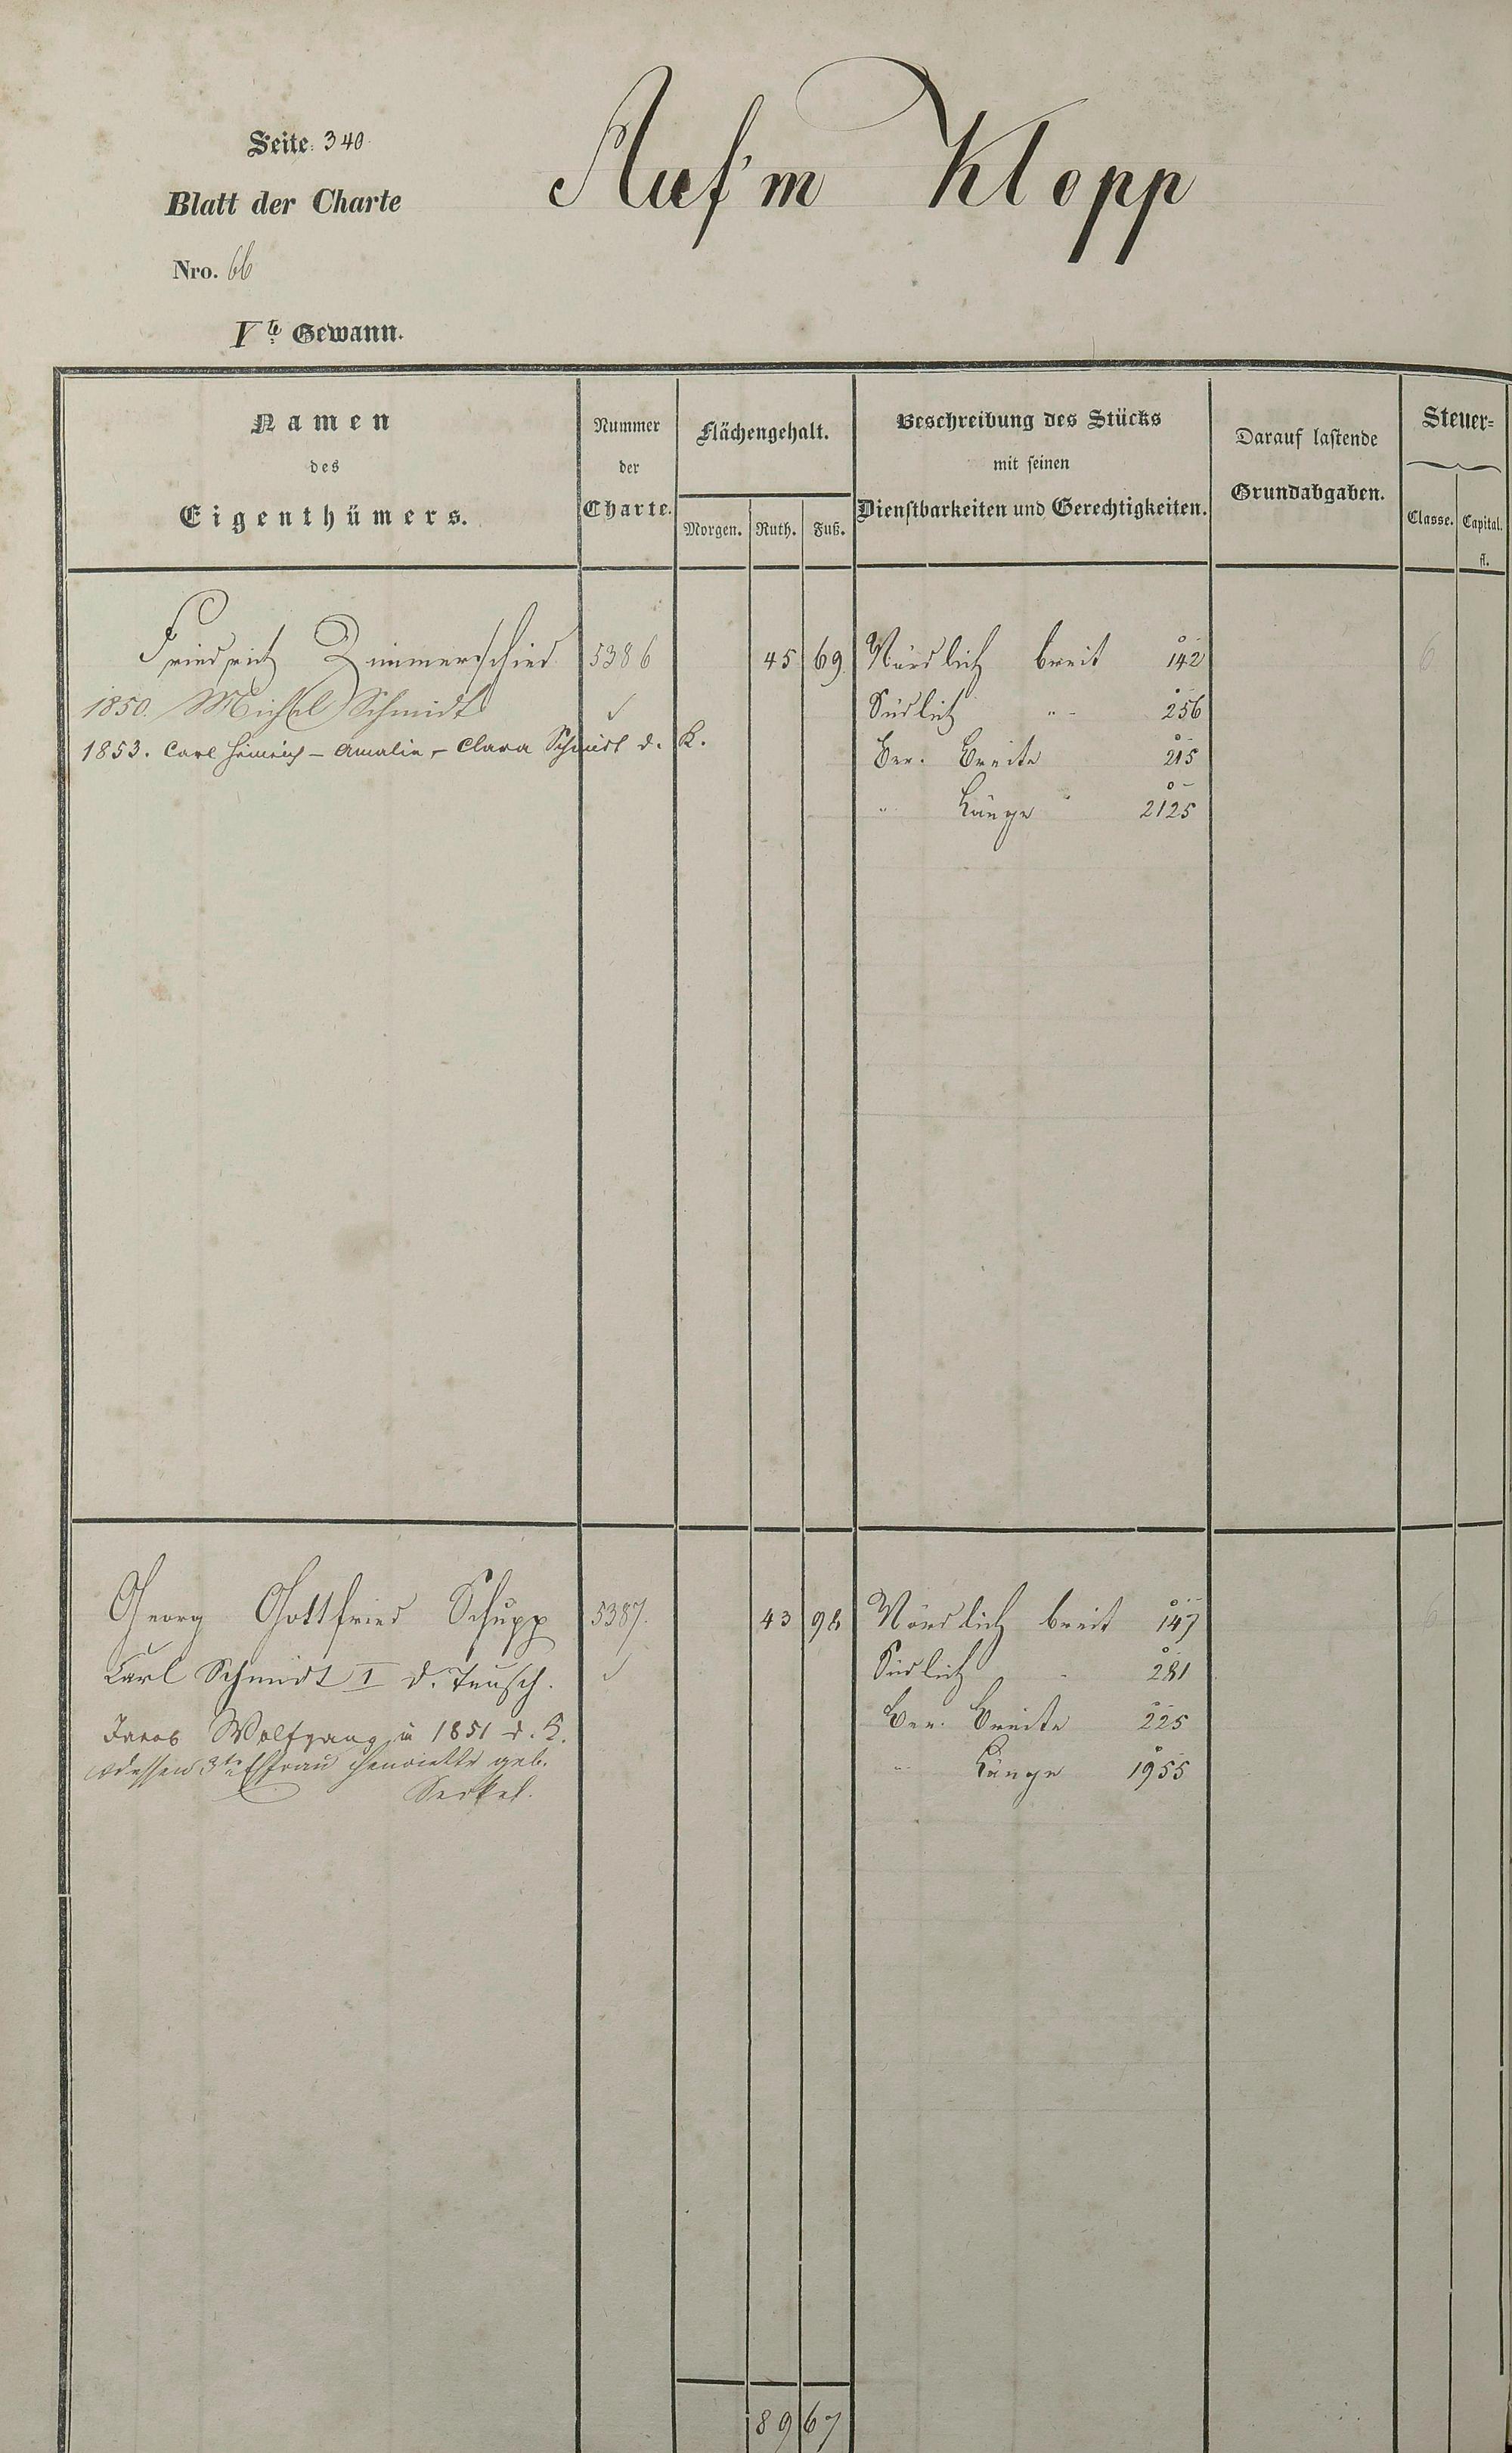 Seite: 340.
Auf'm Klopp
Blatt der Charte
Nro. 66
Vte Gewann.
Namen des Eigenthümers.
Nummer der Charte.
Flächengehalt.
Morgen. Ruth. Fuß.
Beschreibung des Stücks
mit seinen
Dienstbarkeiten und Gerechtigkeiten.
Darauf lastende
Grundabgaben.
Steuer-
Classe. Capital.
fl.
Friedrich Zimmerschied 5386 45 69 Nördlich breit 142 6
1850. Michel Schmidt Südlich " 256
1853. Carl Heinrich - Amalie - Clara Schmidt d. K. Ver. Breite 215
" Länge 2125
Georg Gottfried Schupp 5387. 43 98 Nördlich breit 147 6
Carl Schmidt I d. Tausch. Südlich " 281
Jacob Wolfgang in 1851 d. K. Ver. Breite 225
dessen 3te Ehfrau Henriette geb. " Länge 1955
89 67